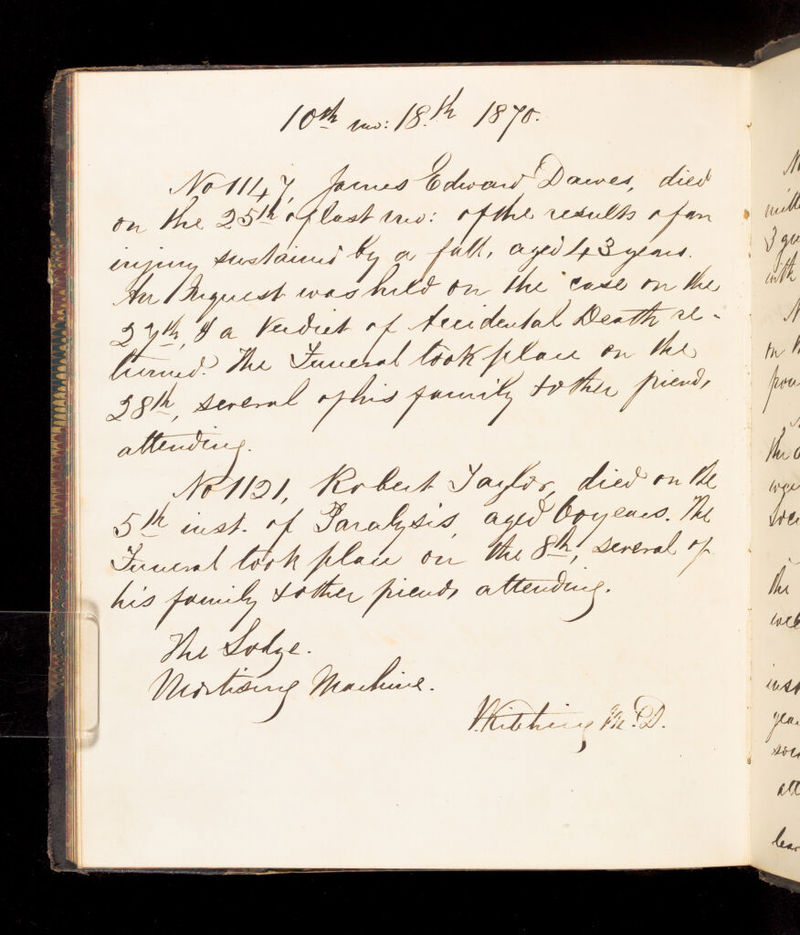 10th mo: 18.th 1870.
No 1147, James Edward Dawes, died
on the 25th of last mo: of the results of an
injury sustained by a fall, aged 43 years.
An Inquest was held on the case on the
27th, & a Verdict of Accidental Death re-
turned. The Funeral took place on the
28th, several of his family & other friends
attending.
No 1121, Robert Taylor, died on the
5th inst. of Paralysis, aged 60 years. The
Funeral took place on the 8th, several of
his family & other friends attending.
The Lodge.
Mortising Machine.
Kitching M.D.